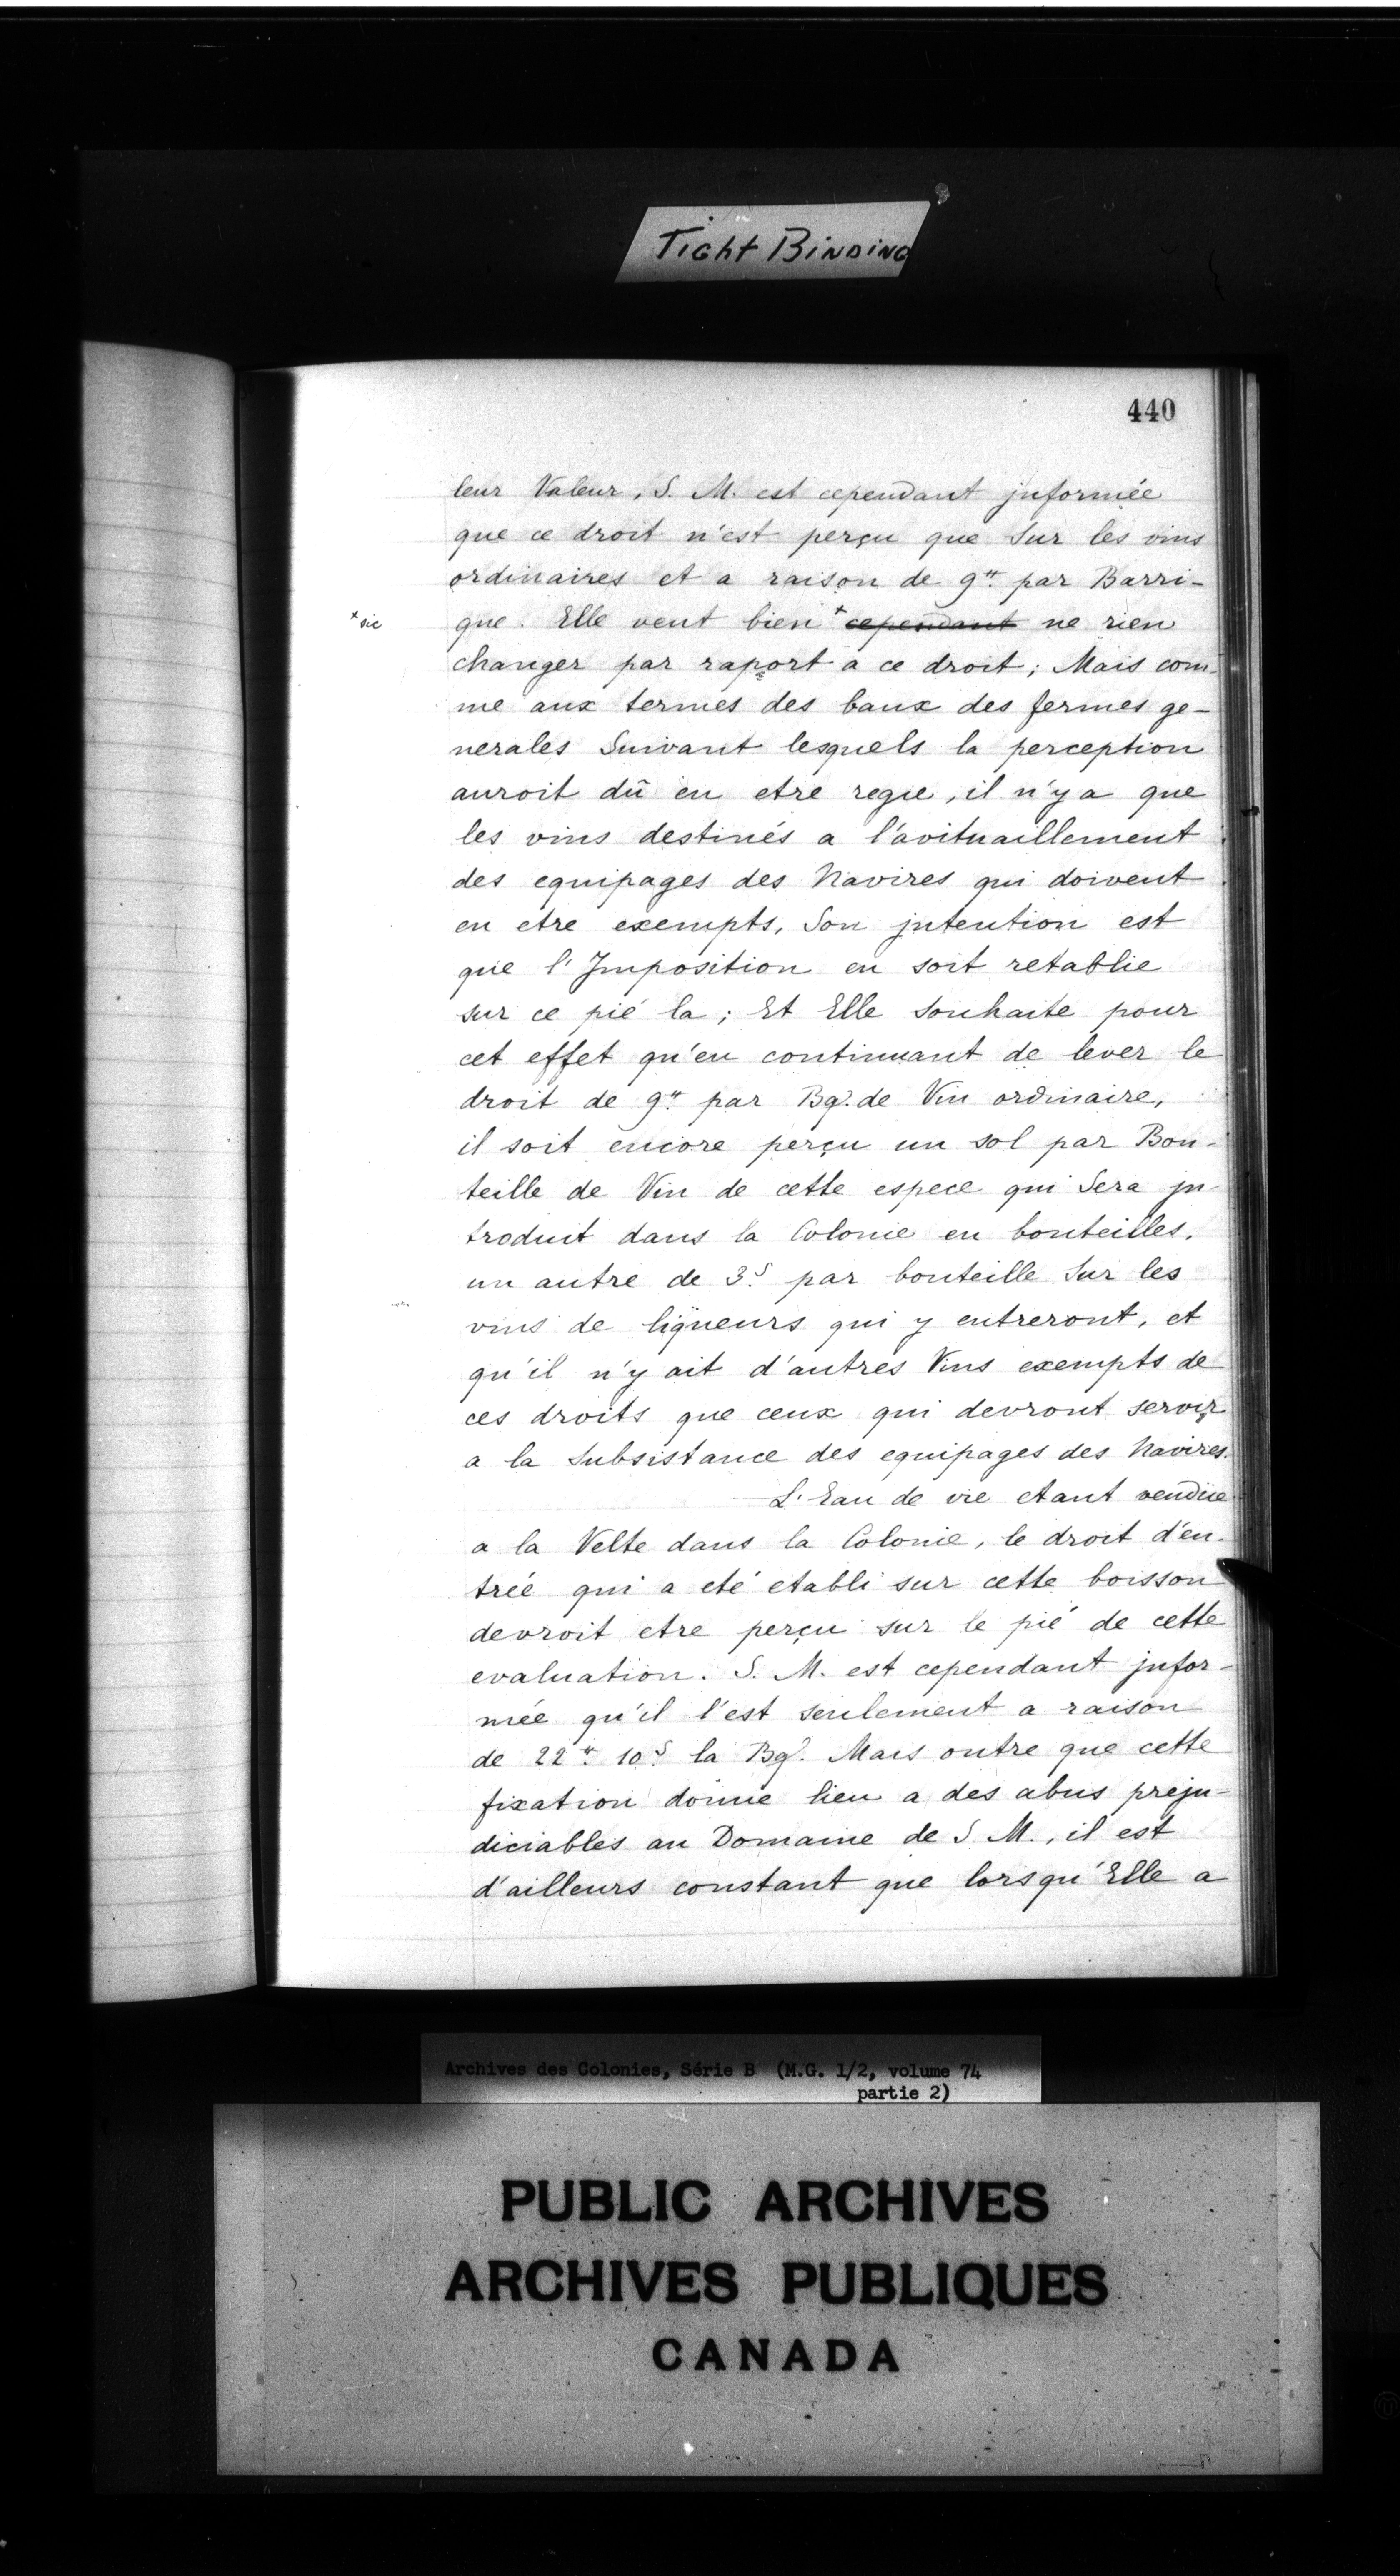 Tight Binding
440
leur Valeur, S. M. est cependant jnformée
que ce droit n'est perçu que Sur les vins
ordinaires et a raison de 9tt par Barri-
*sic
que. Elle veut bien * cependant ne rien
changer par raport a ce droit; Mais com-
me aux termes des baux des fermes ge-
nerales Suivant lesquels la perception
auroit dû en etre regie, il n'y a que
les vins destinés a l'avituaillement
des equipages des Navires qui doivent
en etre exempts, Son jntention est
que l'Jmposition en soit retablie
sur ce pié la; Et Elle Souhaite pour
cet effet qu'en continuant de lever le
droit de 9tt par Bq. de Vin ordinaire,
il soit encore perçu un sol par Bou-
teille de Vin de cette espece qui Sera jn-
troduit dans la Colonie en bouteilles,
un autre de 3s par bouteille Sur les
vins de liqueurs qui y entreront, et
qu'il n'y ait d'autres Vins exempts de
ces droits que ceux qui devront servir
a la Subsistance des equipages des Navires.
L'Eau de vie etant vendüe
a la Velte dans la Colonie, le droit d'en-
trée qui a eté etabli sur cette boisson
devroit etre perçu sur le pié de cette
evaluation. S. M. est cependant jnfor-
mée qu'il l'est seulement a raison
de 22tt 10s la Bq. Mais outre que cette
fixation donne lieu a des abus preju-
diciables au Domaine de S M., il est
d'ailleurs constant que lorsqu'Elle a
Archives des Colonies, Série B (M.G. 1/2, volume 74
partie 2)
PUBLIC ARCHIVES
ARCHIVES PUBLIQUES
CANADA